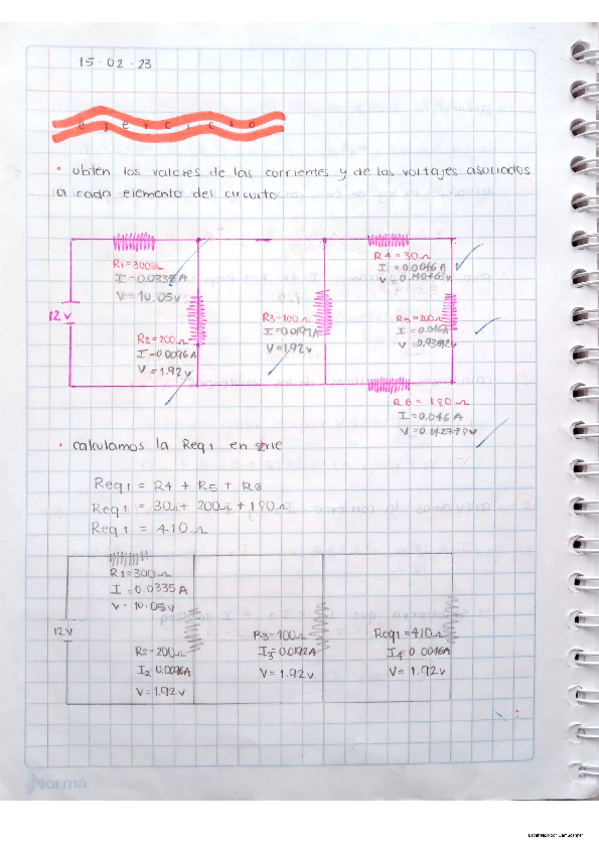 15.02.23
ejercicio
• obten los valores de las corrientes y de los voltajes asociados
a cada elemento del circuito.
R1=300Ω
I=0.0335A
V=10.05v
12v
R2=200Ω
I=0.0096A
V=1.92v
R3=100Ω
I=0.0192A
V=1.92v
R4=30Ω
I=0.0046A
R5=200Ω
I=0.046A
R6=180Ω
I=0.046A
• calculamos la Req1 en serie
Req1 = R4 + R5 + R6
Req1 = 30Ω+ 200Ω+180Ω
Req1 = 410Ω
R1=300Ω
I=0.0335A
V=10.05v
12v
R2=200Ω
I2 0.0096A
V=1.92v
R3=100Ω
I3=0.0192A
V=1.92v
Req1=410Ω
I4=0.0046A
V=1.92v
Norma